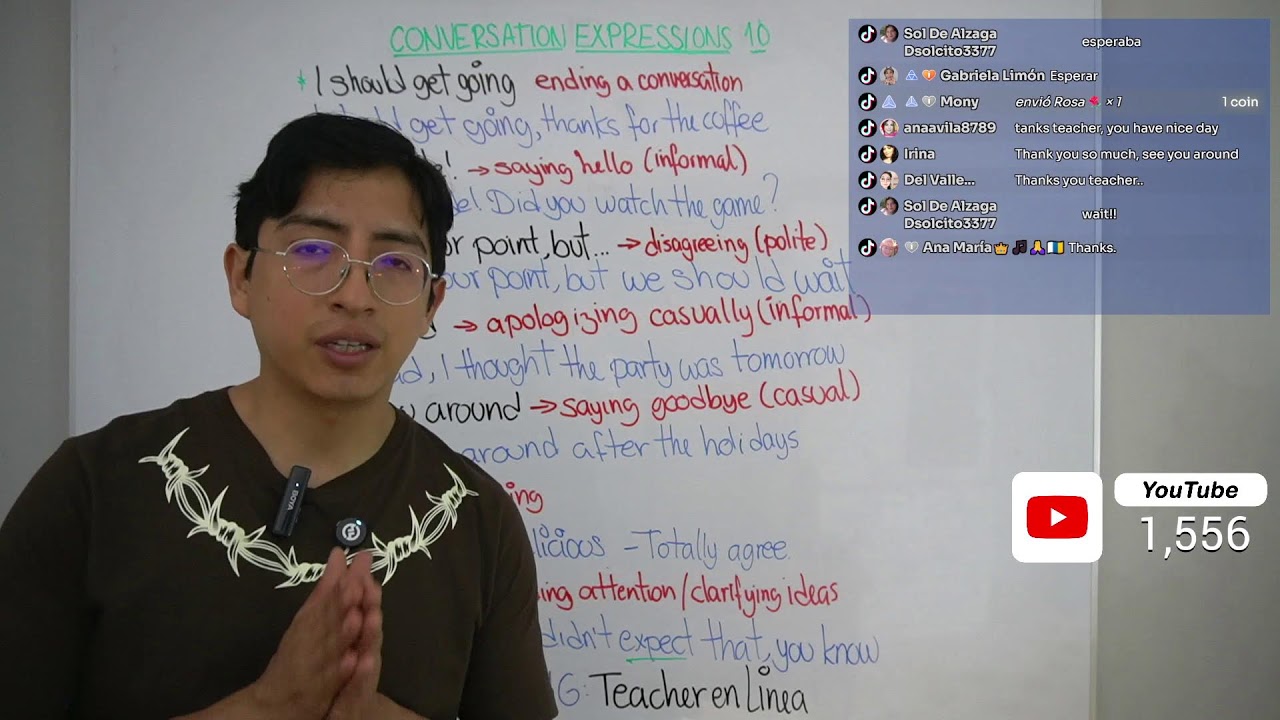 CONVERSATION EXPRESSIONS 10
* I should get going ending a conversation
get going, thanks for the coffee
→ saying hello (informal)
Did you watch the game?
point, but... → disagreeing (polite)
point, but we should wait
→ apologizing casually (informal)
, I thought the party was tomorrow
around → saying goodbye (casual)
around after the holidays
- Totally agree
attention / clarifying ideas
didn't expect that, you know
Teacher en Linea
Sol De Alzaga
Dsolcito3377
esperaba
Gabriela Limón Esperar
Mony envió Rosa ×1 1 coin
anaavila8789 tanks teacher, you have nice day
Irina Thank you so much, see you around
Del Valle... Thanks you teacher..
Sol De Alzaga
Dsolcito3377
wait!!
Ana María Thanks.
YouTube
1,556
BOYA